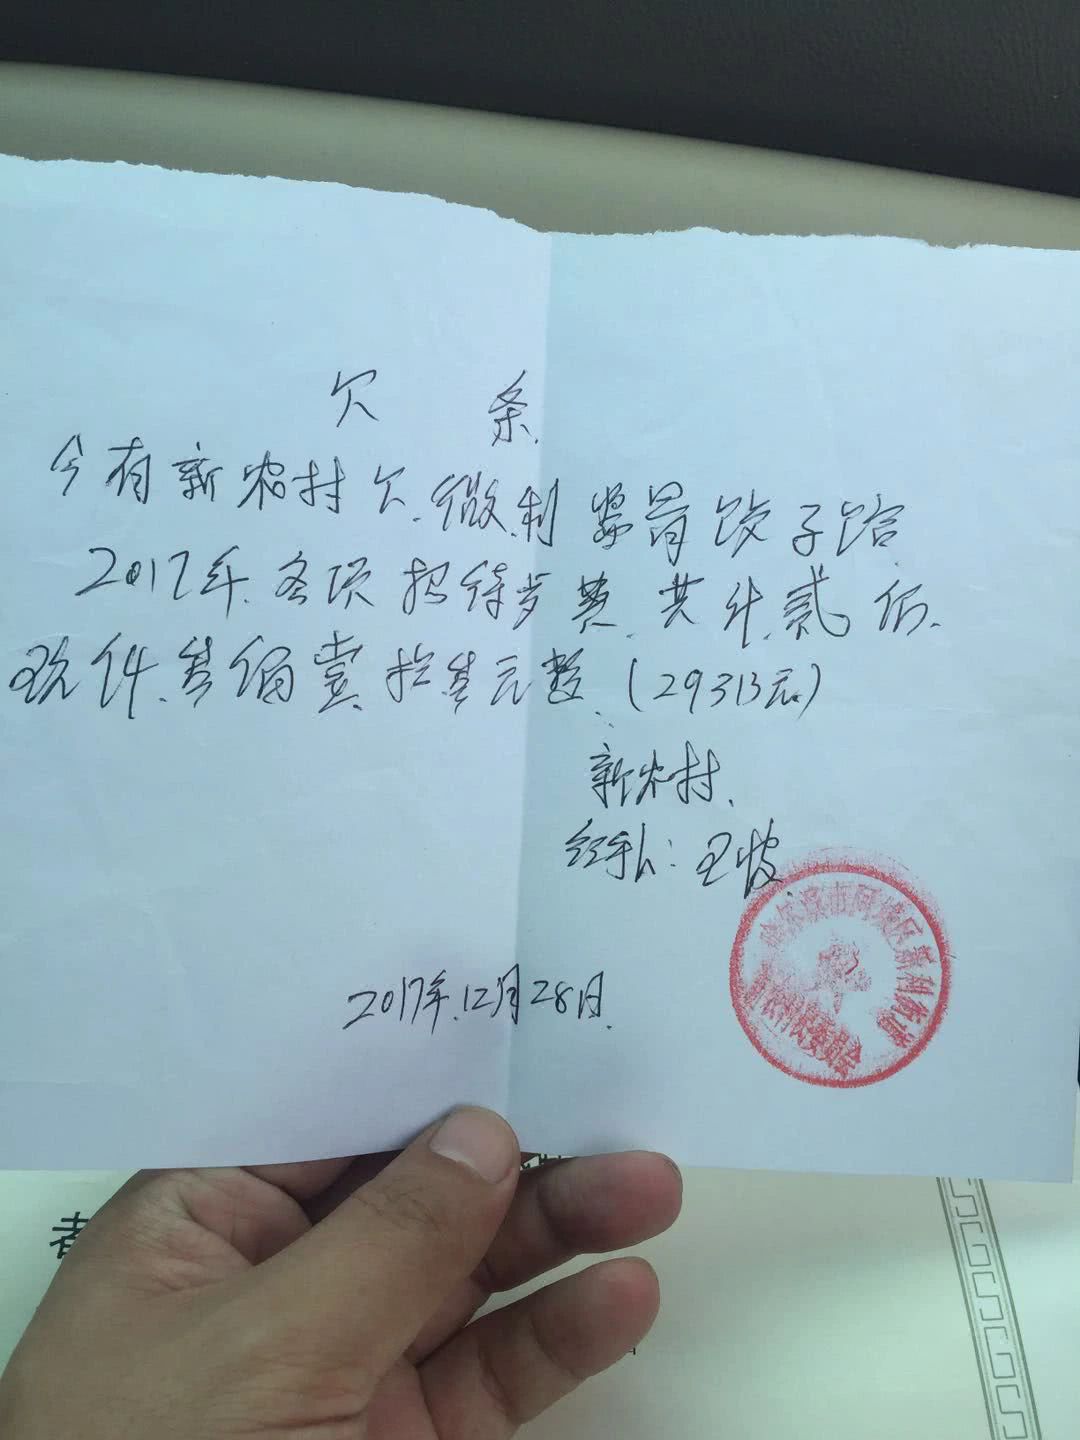 欠 条
今有新农村欠微利

饺子馆
2017年各项招待费共计贰
玖仟叁佰壹拾叁元整(29313元)
新农村
经手人:王
2017年12月28日
哈尔滨市阿城区新利街道
新农村村民委员会